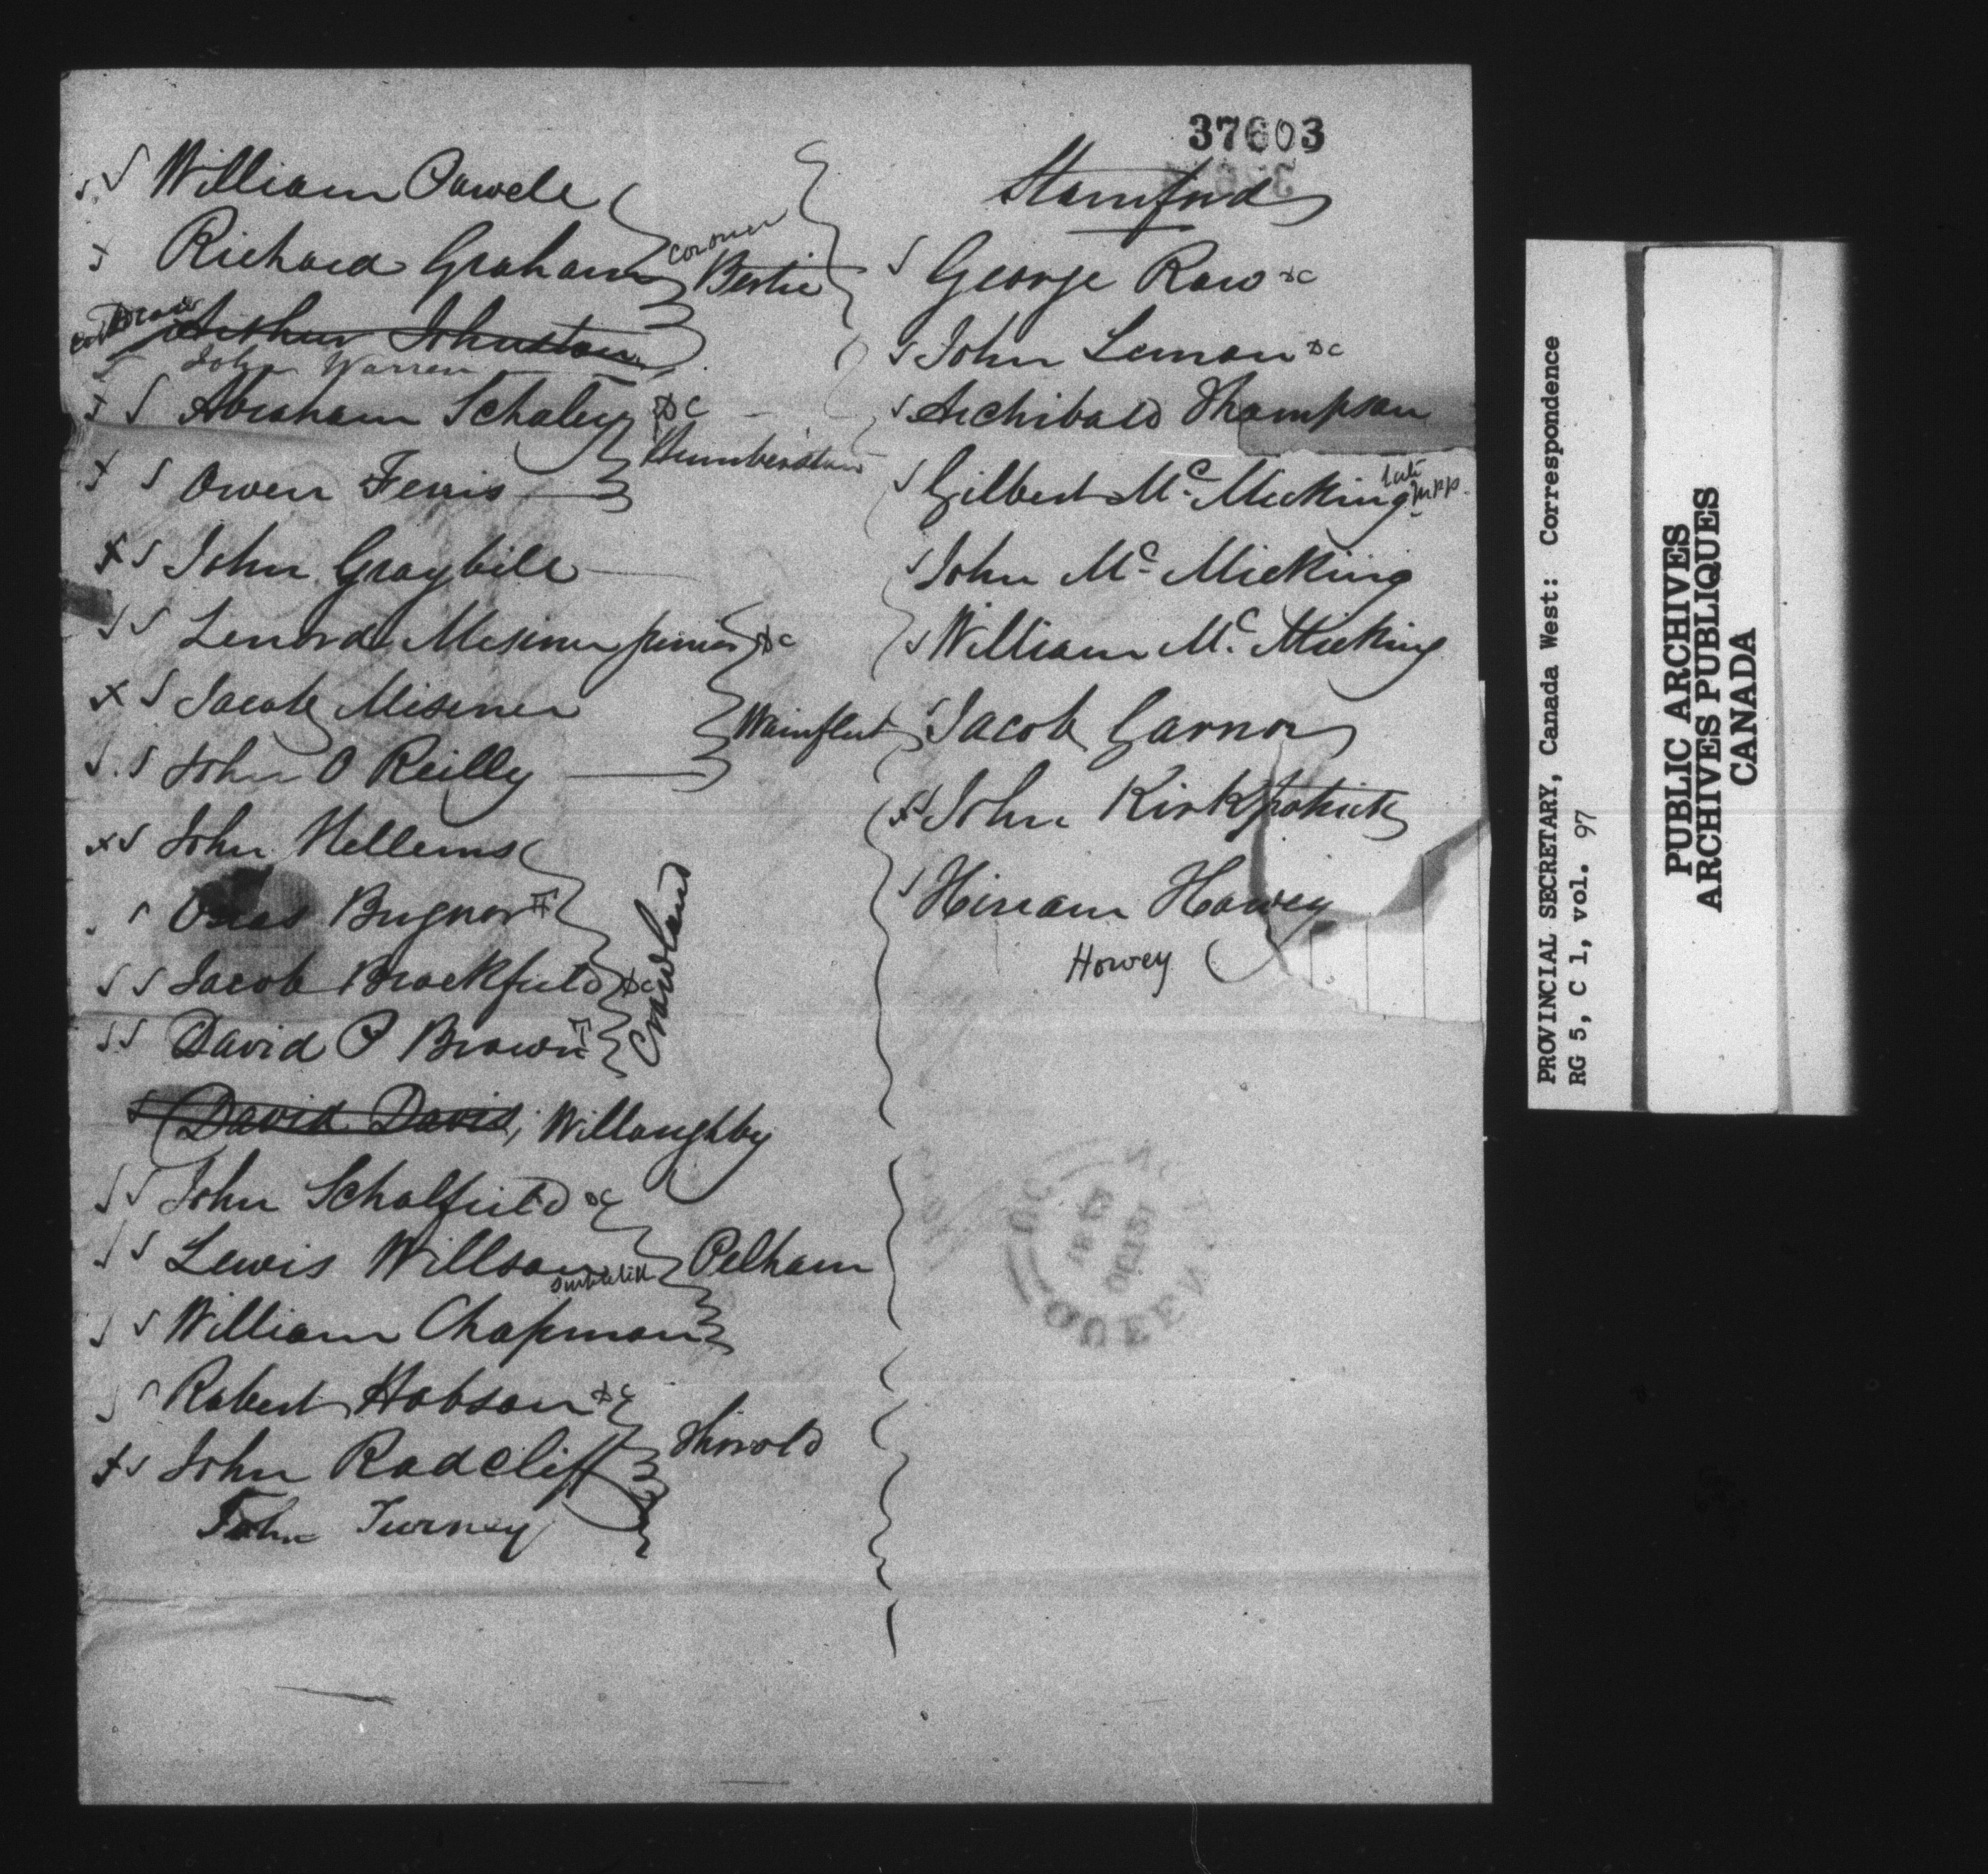 37603
William Powell
Richard Graham
coroner
Bertie
Arthur Johnston
John Warren
Abraham Schaley DC
Humberston
Owen Ferris
John Graybill
Lenord Misener junior DC
Jacob Misener
Wainfleet
John O Reilly
John Hellems
Brignor
Jacob Brackfield DC
David P Brown
Crowland
David Davis, Willoughby
John Scholfield DC
Lewis Willson
Pelham
William Chapman
Robert Hobson DC
Thorold
John Radcliff
John Turney
Stamford
George Raw DC
John Leman DC
Archibald Thompson
Gilbert Mc Micking late MPP.
John Mc Micking
William Mc Micking
Jacob Garnor
John Kirkpatrick
Hiriam Howey
Howey
QUEEN
PROVINCIAL SECRETARY, Canada West: Correspondence
RG 5, C 1, vol. 97
PUBLIC ARCHIVES
ARCHIVES PUBLIQUES
CANADA